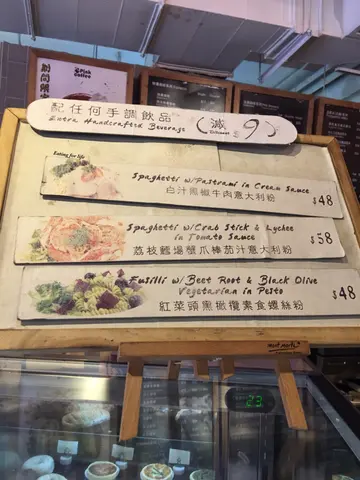 Pink
Coffee
配任何手調飲品
Extra Handcrafted Beverage
減
$9
Eating for life
Spaghetti w/Pastrami in Cream Sauce
白汁黑椒牛肉意大利粉
$48
Spaghetti w/Crab Stick & Lychee
in Tomato Sauce
荔枝鱈場蟹爪棒茄汁意大利粉
$58
Fusilli w/Beet Root & Black Olive
Vegetarian in Pesto
紅菜頭黑橄欖素食螺絲粉
$48
mont marte
23